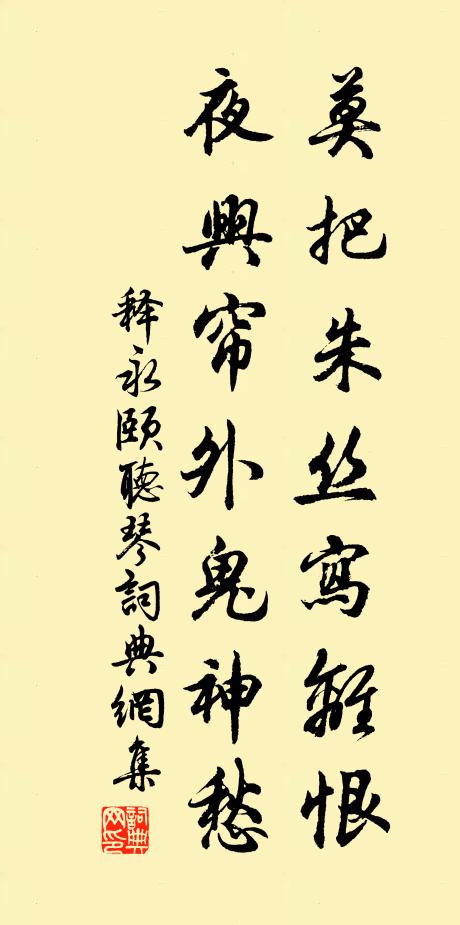 莫把朱丝寫離恨
夜興帘外鬼神愁
释永颐聽琴詞典網集
詞典网印